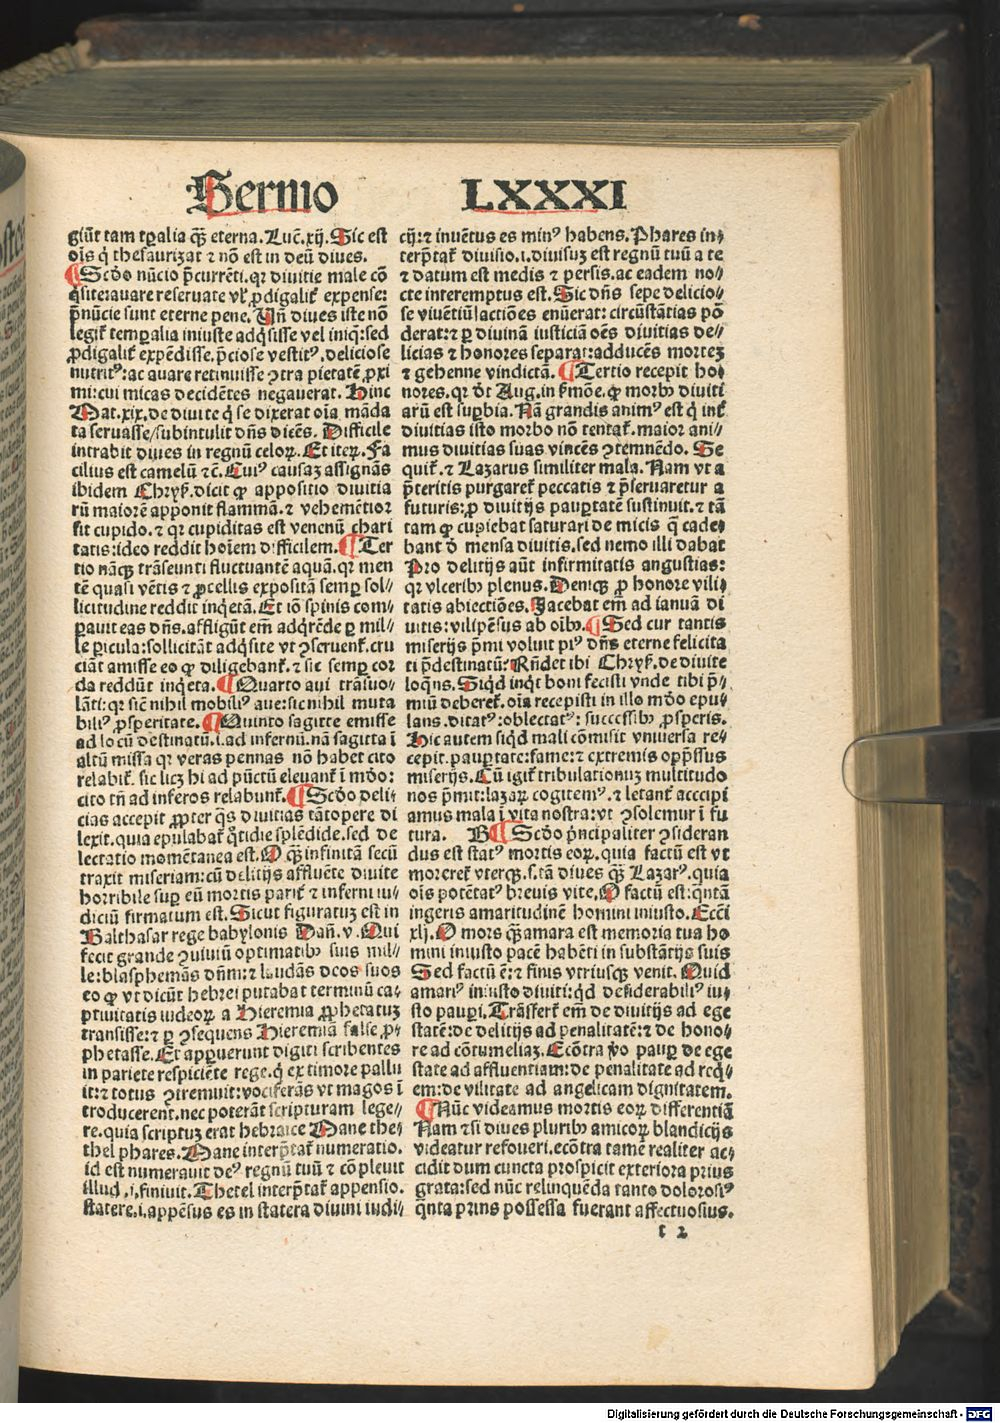 Sermo LXXXI
giūt tam tꝑalia qͣ̄ eterna. Luc̄. xij. Sic est
oīs q̇ thesaurizat ⁊ nō est in deū diues.
¶ Scd̄o nūcio p̄currēti. qꝛ diuitie male cō
q̇site: auare reseruate vl̓ ꝓdigalit̓ expense:
p̄nūcie sunt eterne pene. Vn̄ diues iste nō
legit̓ temꝑalia iniuste adq̇sisse vel iniq̄: sed
ꝓdigalit̓ expēdisse. p̄ciose vestitꝰ, deliciose
nutritꝰ: ac auare retinuisse ꝯtra pietatē ꝓxi
mi: cui micas decidētes negauerat. Hinc
Mat. xix. de diuite q̇ se dixerat oīa māda
ta seruasse/ subintulit dn̄s dicēs. Difficile
intrabit diues in regnū celoꝝ. Et iteꝝ. Fa
cilius est camelū ⁊c̄. Cuiꝰ causaꝫ assignās
ibidem Chryſ. dicit ꝙ appositio diuitia
rū maiorē apponit flammā. ⁊ vehemētior
fit cupido. ⁊ qꝛ cupiditas est venenū chari
tatis: ideo reddit hoīem difficilem. ¶ Ter
tio nāqꝫ trāseunti fluctuantē aquā. qꝛ men
tē quasi vētis ⁊ ꝓcellis expositā semꝑ sol⸗
licitudine reddit inq̇etā. Et iō spinis com⸗
ꝑauit eas dn̄s. affligūt em̄ adq̇rēde ꝑ mil⸗
le ꝑicula: sollicitāt adq̇site vt ꝯseruent̓. cru
ciāt amisse eo ꝙ diligebant̓. ⁊ sic semꝑ cor
da reddūt inq̇eta. ¶ Quarto aui trāsuo⸗
lāti: qꝛ sic̄ nihil mobiliꝰ aue: sic nihil muta
biliꝰ ꝓsperitate. ¶ Quinto sagitte emisse
ad locū destinatū. i. ad infernū. nā sagitta ī
altū missa qꝛ veras pennas nō habet cito
relabit̓. sic licꝫ hi ad pūctū eleuant̓ ī mōdo:
cito tn̄ ad inferos relabunt̓. ¶ Scd̄o deli⸗
cias accepit ꝓpter q̇s diuitias tātopere di
lexit. quia epulabat̓ q̇tidie splēdide. sed de
lectatio momētanea est. O qͣ̄ infinitā secū
traxit miseriam: cū delitijs affluēte diuite
horribile suꝑ eū mortis parit̓ ⁊ inferni iu⸗
diciū firmatum est. Sicut figuratuꝫ est in
Balthasar rege babylonis Dan̄. v. Qui
fecit grande ꝯuiuiū optimatibꝰ suis mil⸗
le: blasphemās dn̄m: ⁊ laudās deos suos
eo ꝙ vt dicūt hebrei putabat terminū ca⸗
ptiuitatis iudeoꝝ a Hieremia ꝓphetatuꝫ
transisse: ⁊ ꝑ ꝯsequens Hieremiā false ꝓ⸗
phetasse. Et apꝑuerunt digiti scribentes
in pariete respiciēte rege. q̇ ex timore pallu
it: ⁊ totus ꝯtremuit: vociferās vt magos ī
troducerent. nec poterāt scripturam lege⸗
re. quia scriptuꝫ erat hebraice Mane the⸗
thel phares. Mane interp̄tat̓ numeratio.
id est numerauit deꝰ regnū tuū ⁊ cōpleuit
illud. i. finiuit. Thetel interp̄tat̓ appensio.
statere. i. appēsus es in statera diuini iudi⸗
cij: ⁊ inuētus es minꝰ habens. Phares in⸗
terp̄tat̓ diuisio. i. diuisuꝫ est regnū tuū a te
⁊ datum est medis ⁊ persis. ac eadem no⸗
cte interemptus est. Sic dn̄s sepe delicio⸗
se viuētiū lactiōes enūerat: circūstātias pō
derat: ⁊ ꝑ diuinā iusticiā oēs diuitias de⸗
licias ⁊ honores separat: adducēs morteꝫ
⁊ gehenne vindictā. ¶ Tertio recepit ho⸗
nores. qꝛ d̓t Aug. in s̓mōe. ꝙ morbꝰ diuiti
arū est suꝑbia. Nā grandis animꝰ est q̇ int̓
diuitias isto morbo nō tentat̓. maior ani⸗
mus diuitias suas vincēs ꝯtemnēdo. Se
quit̓. ⁊ Lazarus similiter mala. Nam vt a
p̄teritis purgaret̓ peccatis ⁊ p̄seruaretur a
futuris: ꝓ diuitijs pauꝑtatē sustinuit. ⁊ tā
tam ꝙ cupiebat saturari de micis q̄ cade⸗
bant d̓ mensa diuitis. sed nemo illi dabat
Pro delitijs aūt infirmitatis angustias:
qꝛ vlceribꝰ plenus. Deniqꝫ ꝓ honore vili⸗
tatis abiectiōes. Jacebat em̄ ad ianuā di
uitis: vilipēsus ab oībꝰ. ¶ Sed cur tantis
miserijs p̄mi voluit piꝰ dn̄s eterne felicita
ti p̄destinatū? Rn̄det ibi Chryſ. de diuite
loq̄ns. Siq̇d inq̇t boni fecisti vnde tibi p̄⸗
miū deberet̓. oīa recepisti in illo mōdo epu⸗
lans. ditatꝰ: oblectatꝰ: successibꝰ ꝓsperis.
Hic autem siq̇d mali cōmisit vniuersa re⸗
cepit. pauꝑtate: fame: ⁊ extremis opp̄ssus
miserijs. Cū igit̓ tribulationuꝫ multitudo
nos p̄mit: lazaꝝ cogitemꝰ. ⁊ letant̓ accipi
amus mala ī vita nostra: vt ꝯsolemur ī fu
tura. B ¶ Scd̄o p̓ncipaliter ꝯsideran
dus est statꝰ mortis eoꝝ. quia factū est vt
moreret̓ vterqꝫ. s. tā diues qͣ̄ Lazarꝰ. quia
oīs potētatꝰ breuis vite. O factū est: q̄ntā
ingeris amaritudinē homini iniusto. Ecc̄i
xlj. O mors qͣ̄ amara est memoria tua ho
mini iniusto pacē habēti in substātijs suis
Sed factū ē: ⁊ finis vtriusqꝫ venit. Quid
amariꝰ iniusto diuiti: qd̓ desiderabiliꝰ iu⸗
sto pauꝑi. Trāsfert̓ em̄ de diuitijs ad ege
statē: de delitijs ad penalitatē: ⁊ de hono⸗
re ad cōtumeliaꝫ. Ecōtra v̓o pauꝑ de ege
state ad affluentiam: de penalitate ad req̇⸗
em: de vilitate ad angelicam dignitatem.
¶ Nūc videamus mortis eoꝝ differentiā
Nam ⁊si diues pluribꝰ amicoꝝ blandicijs
videatur refoueri. ecōtra tamē realiter ac⸗
cidit dum cuncta prospicit exteriora prius
grata: sed nūc relinquēda tanto dolorosiꝰ
q̄nta prius possessa fuerant affectuosius.
t 2
Digitalisierung gefördert durch die Deutsche Forschungsgemeinschaft - DFG